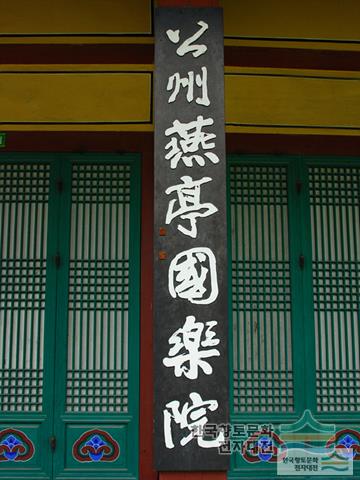 公州燕亭國樂院
한국향토문화
전자대전
한국향토문화
전자대전